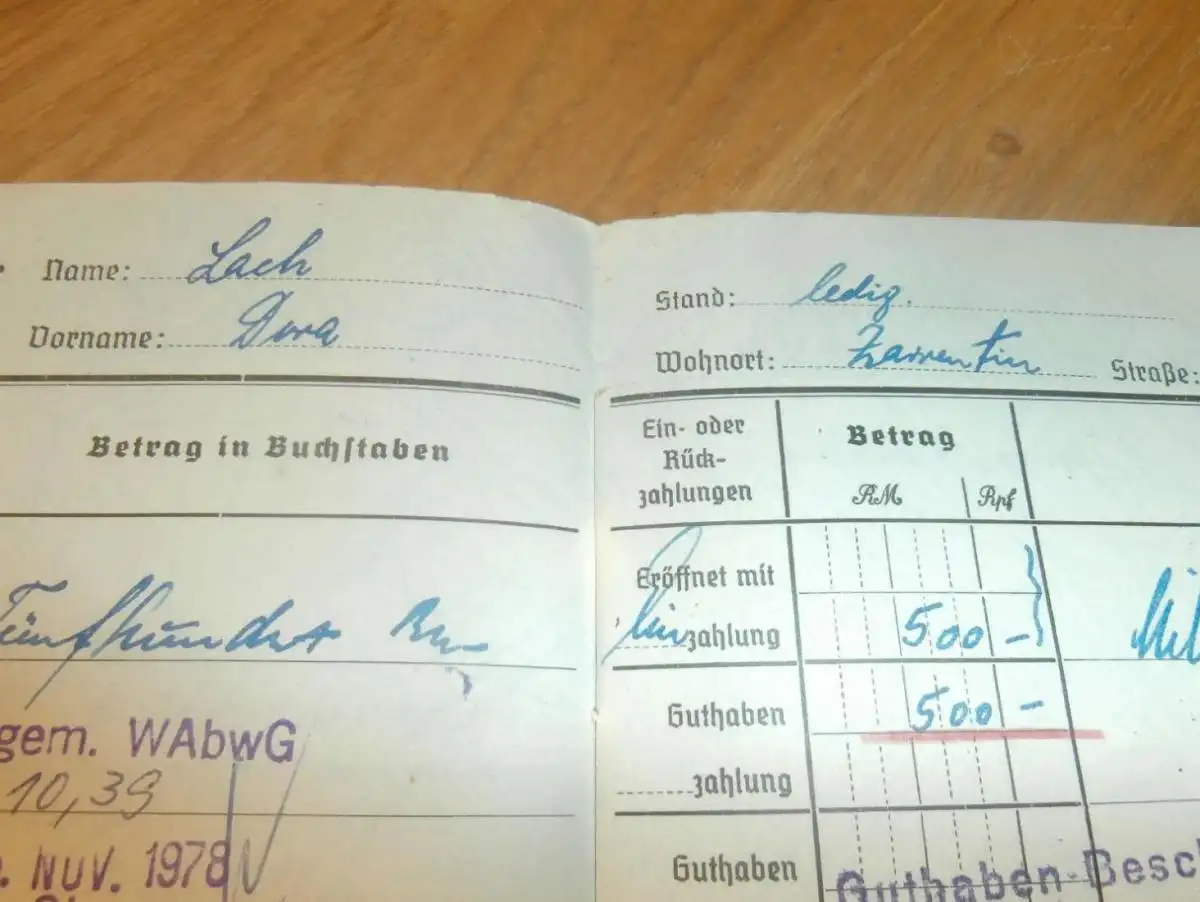 Name: Lach
Vorname: Dora
Betrag in Buchstaben
Fünfhundert RM
gem. WAbwG
10,39
. NOV. 1978
Stand: ledig.
Wohnort: Zarrentin Straße:
Ein- oder
Rück-
zahlungen
Betrag
RM Rpf
Eröffnet mit
Einzahlung 500 –
Guthaben 500 –
zahlung
Guthaben
Guthaben-Besch